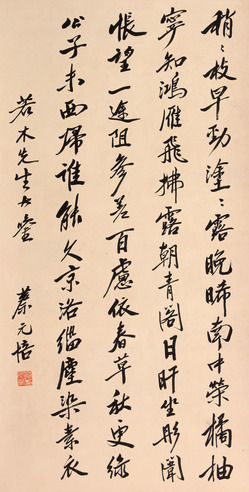 稍〻枝早勁塗〻露晚晞南中榮橘柚
寧知鴻雁飛拂露朝青閣日旰坐彤闈
悵望一途阻參差百慮依春草秋更綠
公子未西歸誰能久京洛緇塵染素衣
若木先生大鑒 蔡元培